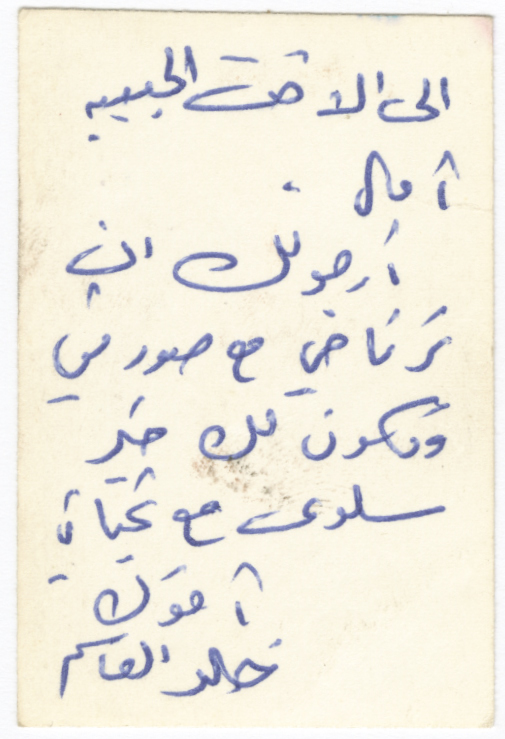 الى الاخت الحبيبه
آمال
أرجو لك ان
ترتاحي مع صورتي
وتكون لك خير
سلوى مع تحياتي
أخوك
خالد القاسم